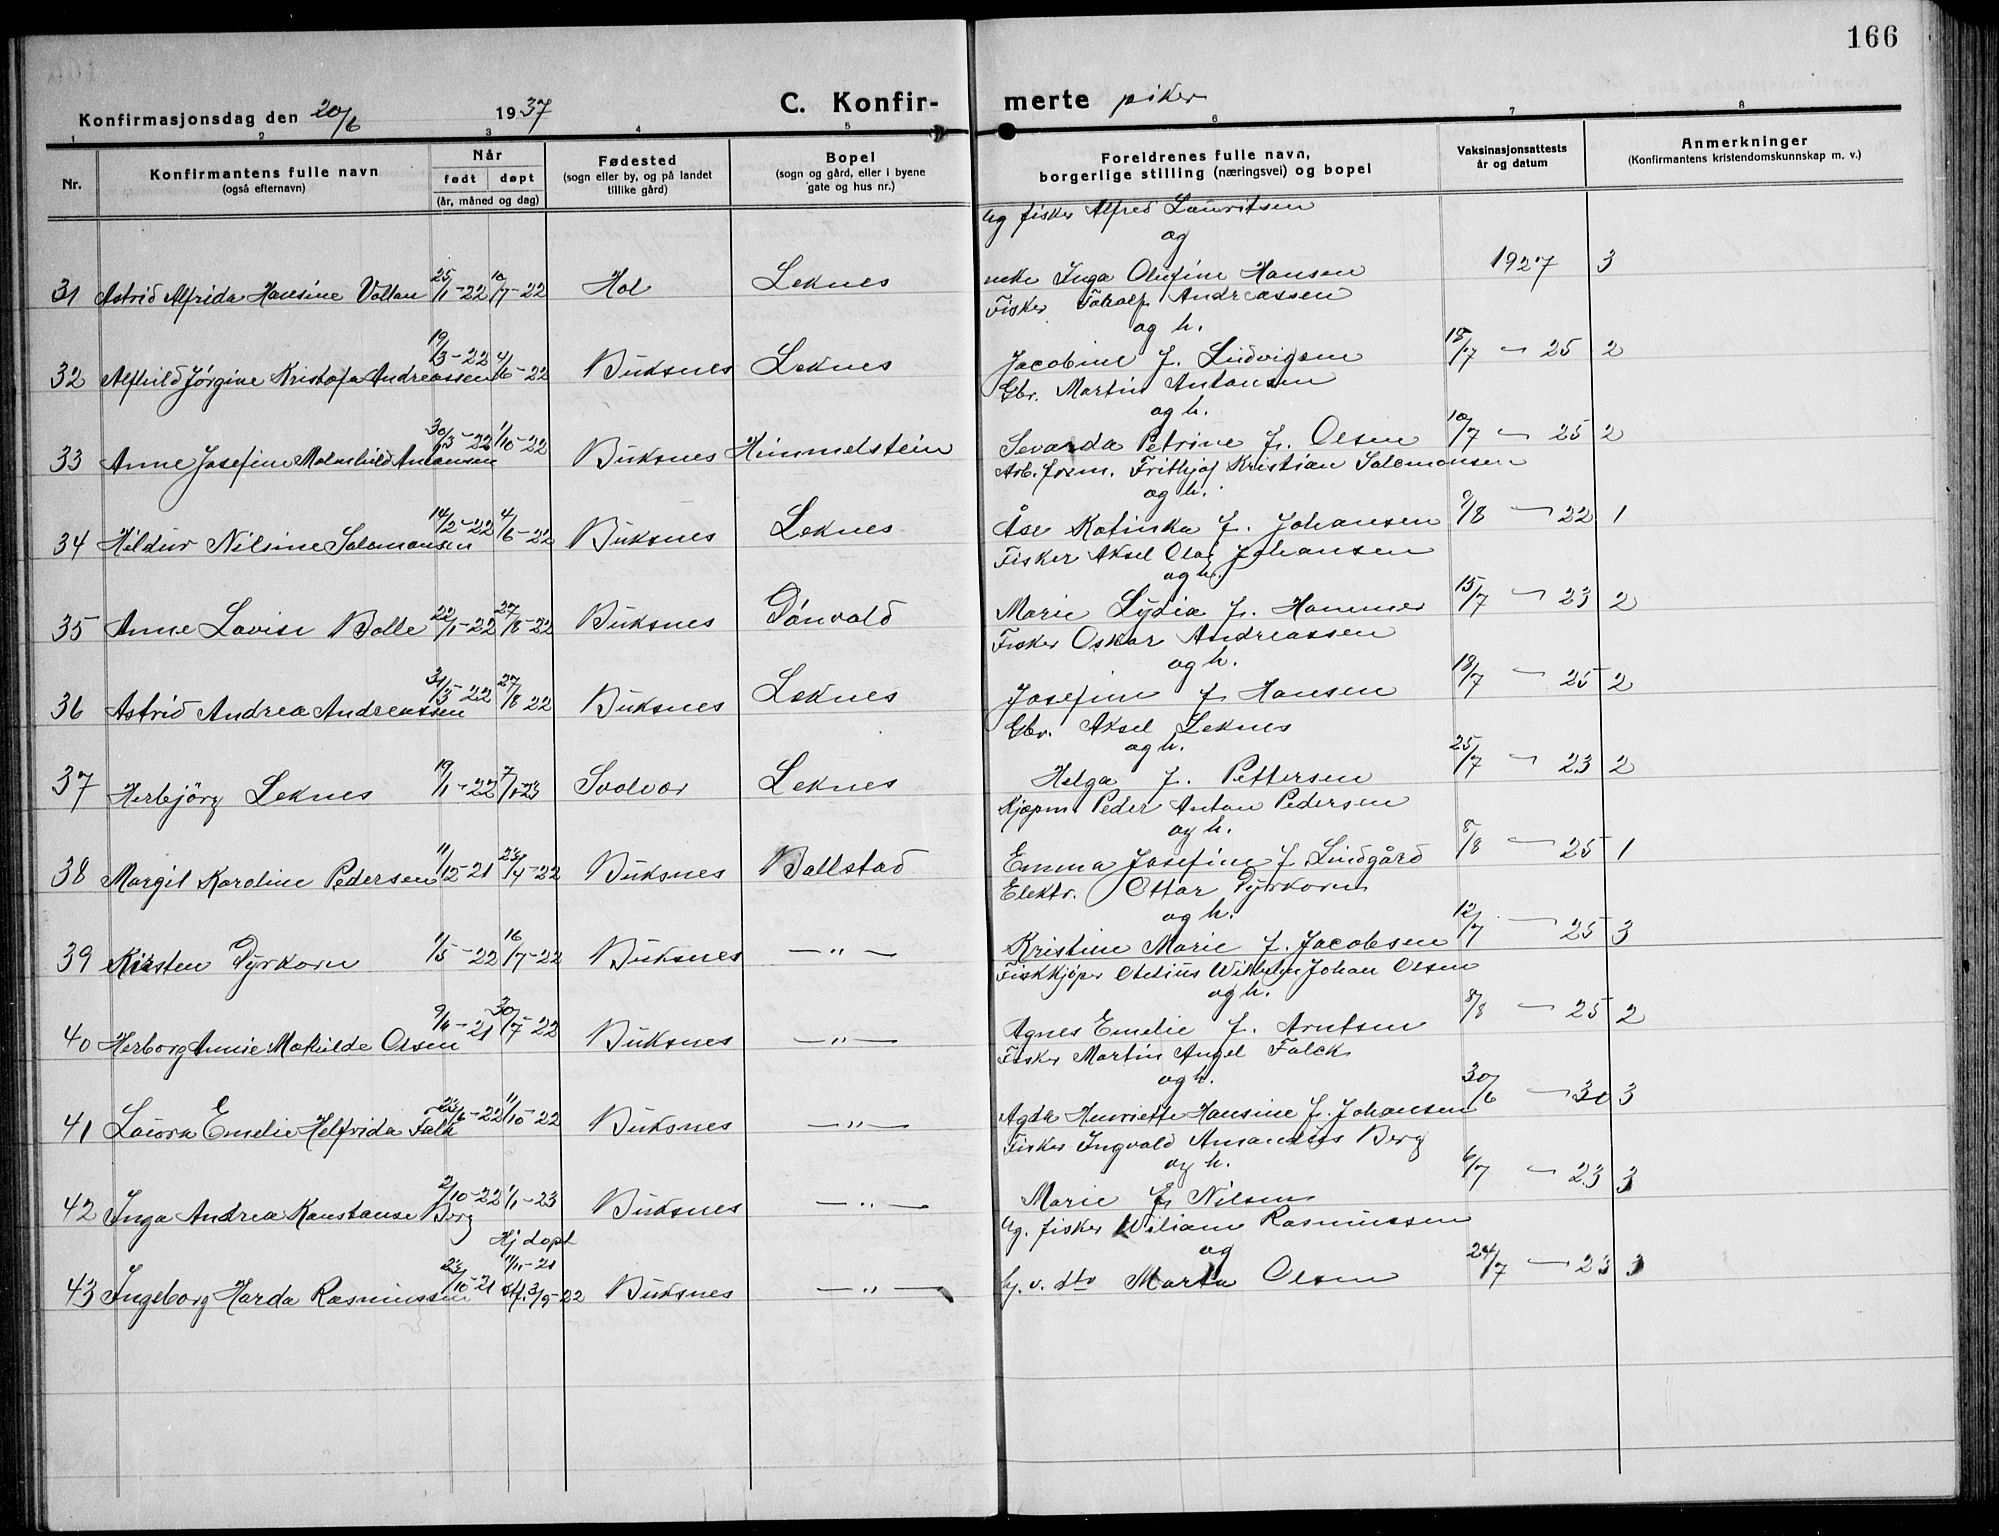 166
Konfirmasjonsdag den 20/6 1937 C. Konfir- merte piker
1 2 3 4 5 6 7 8
Nr. Konfirmantens fulle navn (også efternavn) Når født døpt (år, måned og dag) Fødested (sogn eller by, og på landet tillike gård) Bopel (sogn og gård, eller i byene gate og hus nr.) Foreldrenes fulle navn, borgerlige stilling (næringsvei) og bopel Vaksinasjonsattests år og datum Anmerkninger (Konfirmantens kristendomskunnskap m. v.)
Ug fisker Alfred Lauritsen
og
31 Astrid Alfrida Hansine Voltan 25/1-22 10/7-22 Hol Leknes Inga Olufine Hansen 1927 3
Fisker Andreassen
og h.
32 Alfhild Jørgine Kristofa Andreassen 19/3-22 4/6-22 Buksnes Leknes Jacobine f. Ludvigsen 18/7 - 25 2
Gbr. Martin Antonsen
og h.
33 Anne Josefine Malmhild Antonsen 30/3-22 1/10-22 Buksnes Himmelstein Sevarda Petrine f. Olsen 10/7 - 25 2
Arb. form. Frithjof Kristian Salomonsen
og h.
34 Hildur Nilsine Salomonsen 14/2-22 4/6-22 Buksnes Leknes Åse Katinka f. Johansen 9/8 - 22 1
Fisker Aksel Olaf Johansen
og h.
35 Anne Lovise Bolle 22/1-22 27/8-22 Buksnes Gånvold Marie Lydia f. Hammer 15/7 - 23 2
Fisker Oskar Andreassen
og h.
36 Astrid Andrea Andreassen 31/3-22 27/8 22 Buksnes Leknes Josefine f Hansen 18/7 - 25 2
Gbr. Aksel Leknes
og h.
37 Herbjörg Leknes 19/1-22 7/1-23 Svolvær Leknes Helga f. Pettersen 25/7 - 23 2
Kjøpm Peder Anton Pedersen
og h.
38 Margit Karoline Pedersen 11/12-21 23/4-22 Buksnes Ballstad Emma Josefine f Lindgård 5/8 - 25 1
Elektr. Ottar Dyrkorn
og h.
39 Kirsten Dyrkorn 1/5-22 16/7-22 Buksnes —"— Kristine Marie f. Jacobsen 12/7 - 25 3
Fiskkjøper Otelius Wilhelm Johan Olsen
og h.
40 Herborg Annie Mathilde Olsen 9/4-21 30/7-22 Buksnes —"— Agnes Emelie f. Arntsen 8/8 - 25 2
Fisker Martin Angel Falck
og h.
41 Laura Emelie Helfrida Falk 23/6-22 1/10-22 Buksnes —"— Agda Henriette Hansine f. Johansen 30/6 - 31 3
Fisker Ingvald Amandus Berg
og h.
42 Inga Andrea Konstanse Berg 2/10-22 1/1-23 Buksnes —"— Marie f. Nilsen 6/7 - 23 3
Hj døpt Ug. fisker Wiliam Rasmussen
11/11-21 og
43 Ingeborg Harda Rasmussen 23/10-21 stf. 3/9-22 Buksnes —"— Marta Olsen 24/7 - 23 3